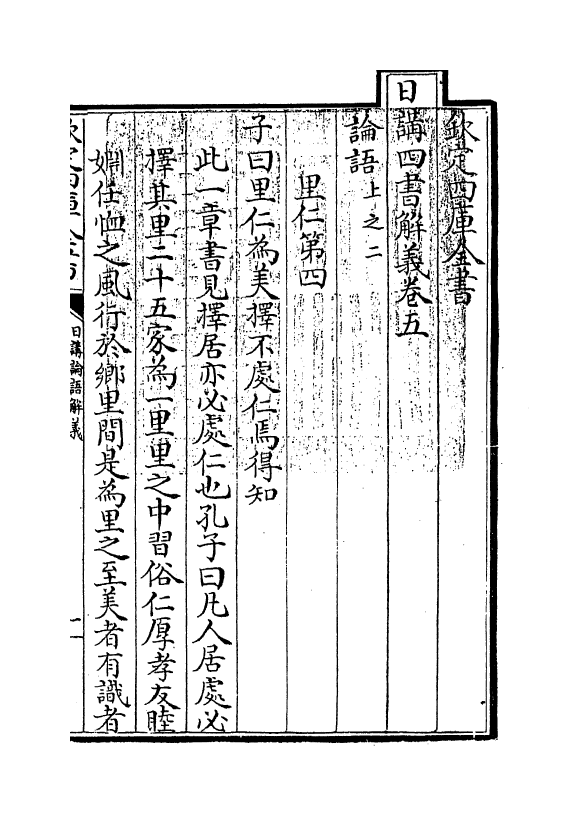 欽定四庫全書
日講四書解義卷五
論語上之二
里仁第四
子曰里仁為美擇不處仁焉得知
此一章書見擇居亦必處仁也孔子曰凡人居處必
擇其里二十五家為一里里之中習俗仁厚孝友睦
婣任恤之風行於鄉里間是為里之至美者有識者
日講論語解義
一